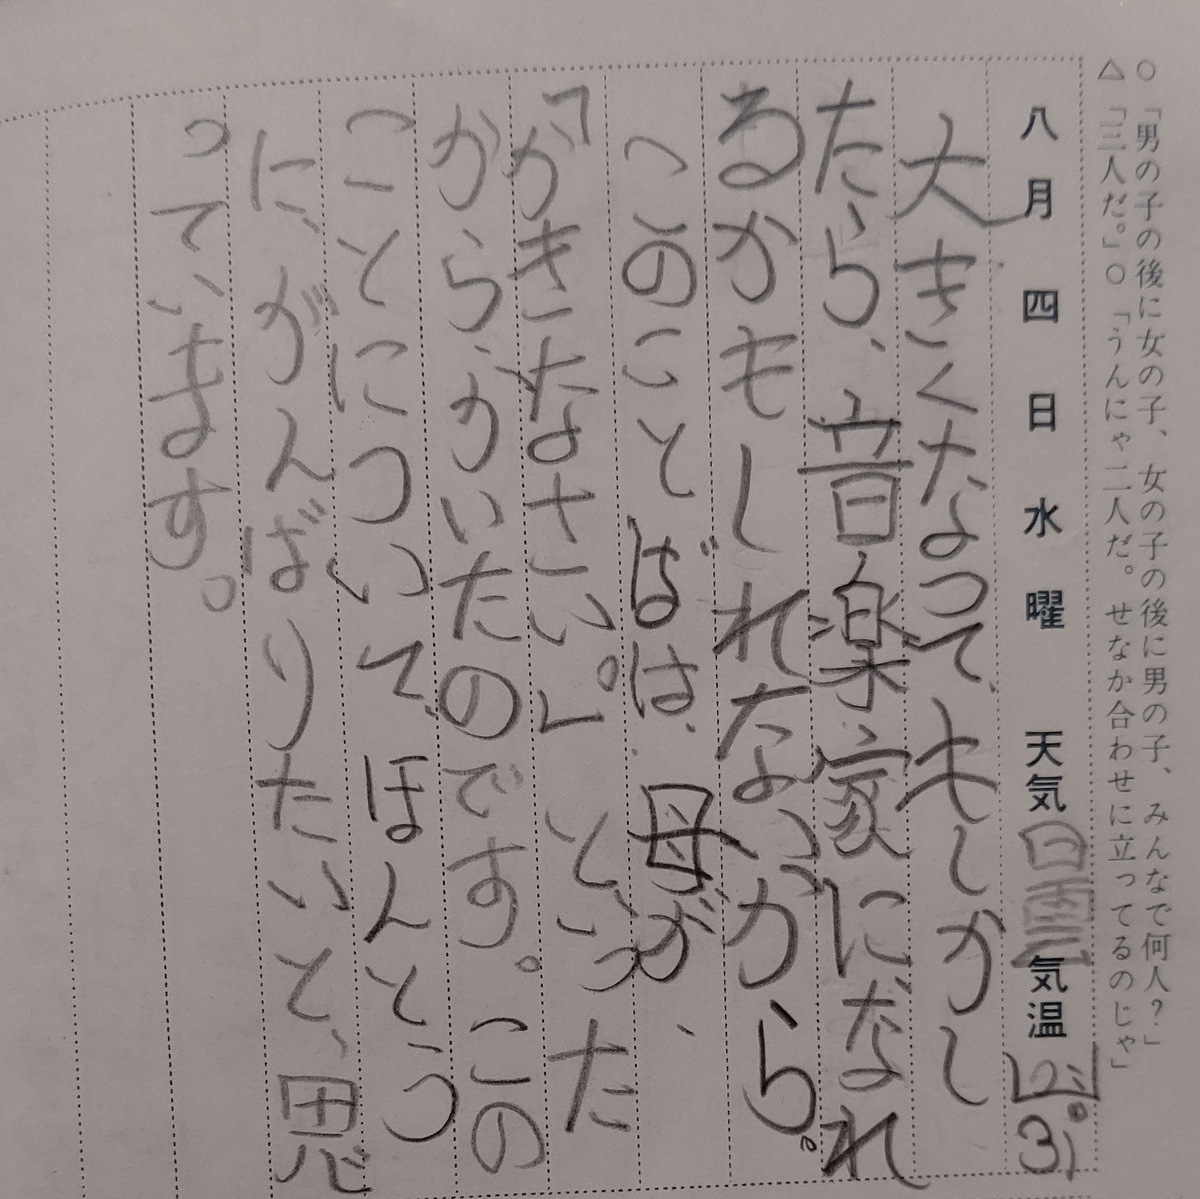 ○「男の子の後に女の子、女の子の後に男の子、みんなで何人？」
△「三人だ。」○「うんにゃ二人だ。せなか合わせに立ってるのじゃ」
八月四日水曜 天気 気温
大きくなって、もしかし
たら、音楽家になれ
るかもしれないから。
へこのことばは、母が、
「かきなさい。」といった
から、かいたのです。この
ことについて、ほんとう
に、がんばりたいと、思
っています。